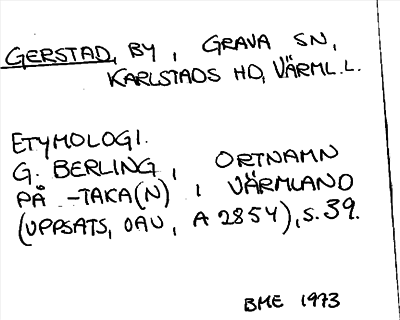 GERSTAD, BY, GRAVA SN,
KARLSTADS HD, VÄRML.L.
ETYMOLOGI.
G. BERLING, ORTNAMN
PÅ -TAKA(N) I VÄRMLAND
(UPPSATS, OAU, A 2854), S. 39.
BME 1973